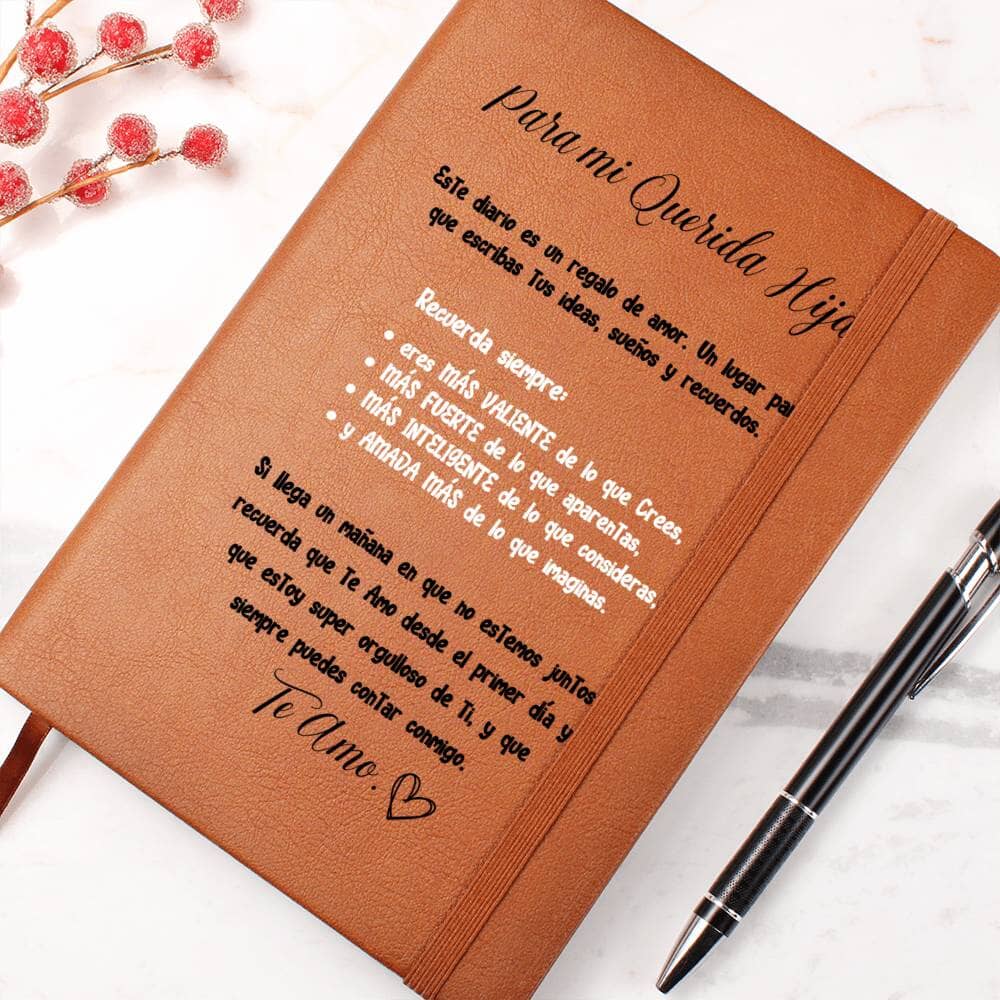 Para mi Querida Hija
Este diario es un regalo de amor. Un lugar
que escribas Tus ideas, sueños y recuerdos.
Recuerda siempre:
• eres MÁS VALIENTE de lo que Crees,
• MÁS FUERTE de lo que aparentas,
• MÁS INTELIGENTE de lo que consideras,
• y AMADA MÁS de lo que imaginas.
Si llega un mañana en que no estemos juntos
recuerda que Te Amo desde el primer día y
que estoy super orgulloso de Ti, y que
siempre puedes contar conmigo.
Te Amo.